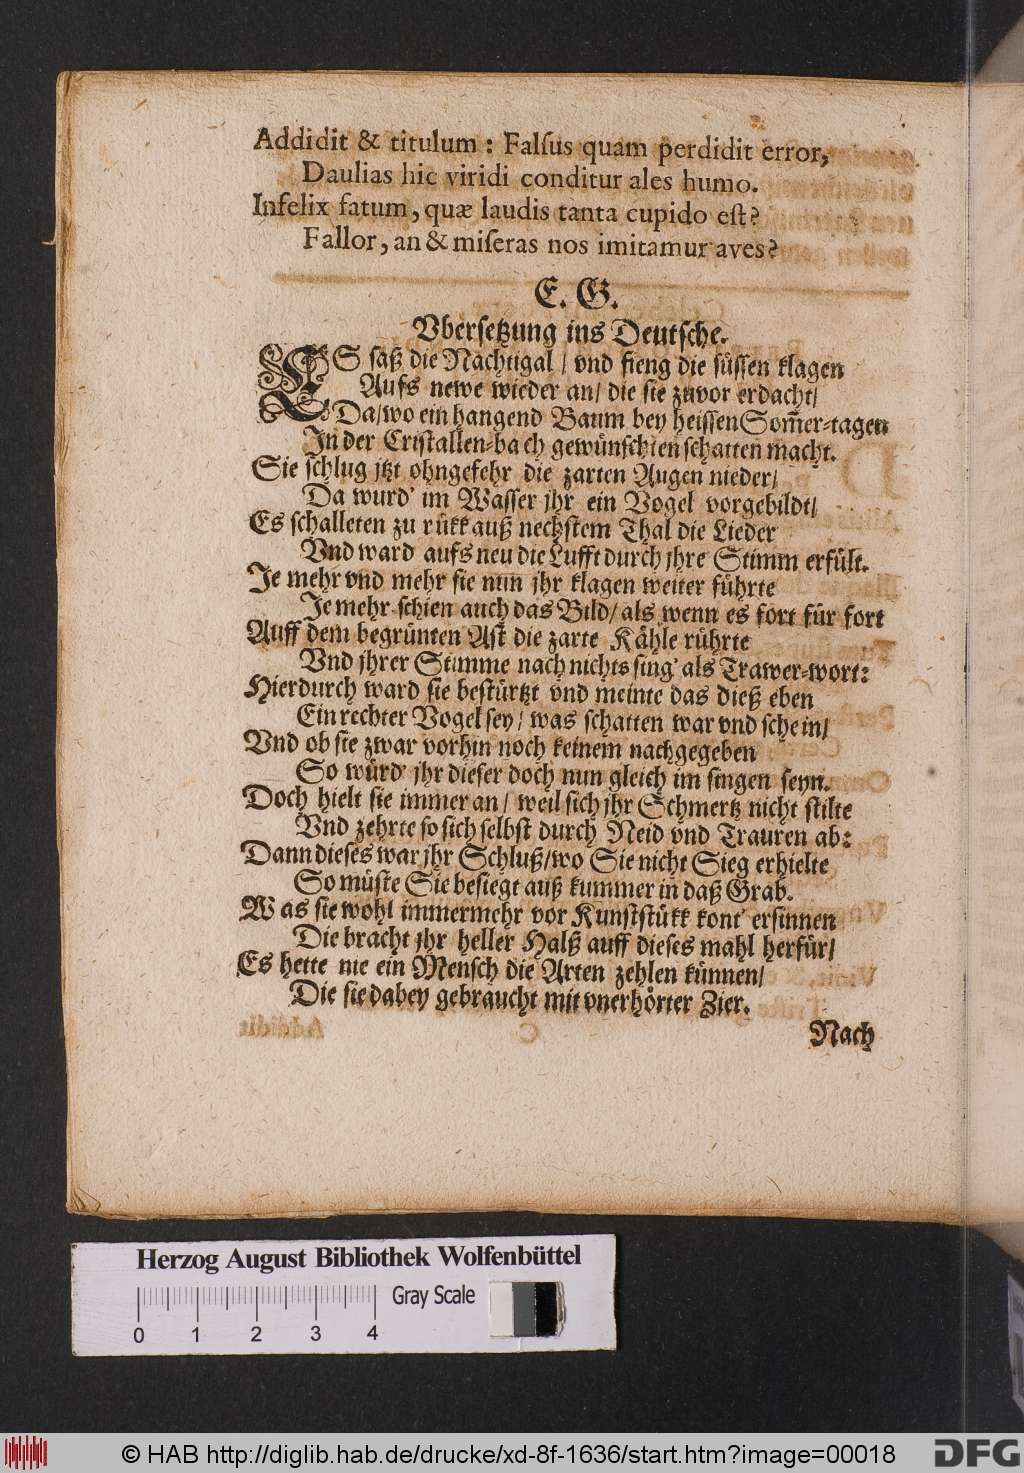 Addidit & titulum : Falsus quam perdidit error,
Daulias hic viridi conditur ales humo.
Infelix fatum, quæ laudis tanta cupido est?
Fallor, an & miseras nos imitamur aves?
E. G.
Vbersetzung ins Deutsche.
ES saß die Nachtigal / vnd fieng die süssen klagen
Aufs newe wieder an / die sie zuvor erdacht /
Da / wo ein hangend Baum bey heissen Som̃er-tagen
In der Cristallen-bach gewünschten schatten macht.
Sie schlug jtzt ohngefehr die zarten Augen nieder /
Da wurd' im Wasser jhr ein Vogel vorgebildt /
Es schalleten zu rükk auß nechstem Thal die Lieder
Vnd ward aufs neu die Lufft durch jhre Stimm erfült.
Je mehr vnd mehr sie nun jhr klagen weiter führte
Je mehr schien auch das Bild / als wenn es fort für fort
Auff dem begrünten Ast die zarte Kähle rührte
Vnd jhrer Stimme nach nichts sing' als Trawer-wort:
Hierdurch ward sie bestürtzt vnd meinte das dieß eben
Ein rechter Vogel sey / was schatten war vnd schein /
Vnd ob sie zwar vorhin noch keinem nachgegeben
So würd' jhr dieser doch nun gleich im singen seyn.
Doch hielt sie immer an / weil sich jhr Schmertz nicht stilte
Vnd zehrte so sich selbst durch Neid vnd Trauren ab:
Dann dieses war jhr Schluß / wo Sie nicht Sieg erhielte
So müste Sie besiegt auß kummer in daß Grab.
Was sie wohl immermehr vor Kunststükk kont' ersinnen
Die bracht jhr heller Halß auff dieses mahl herfür /
Es hette nie ein Mensch die Arten zehlen künnen /
Die sie dabey gebraucht mit vnerhörter Zier.
Nach
Herzog August Bibliothek Wolfenbüttel
Gray Scale
0 1 2 3 4
© HAB http://diglib.hab.de/drucke/xd-8f-1636/start.htm?image=00018
DFG